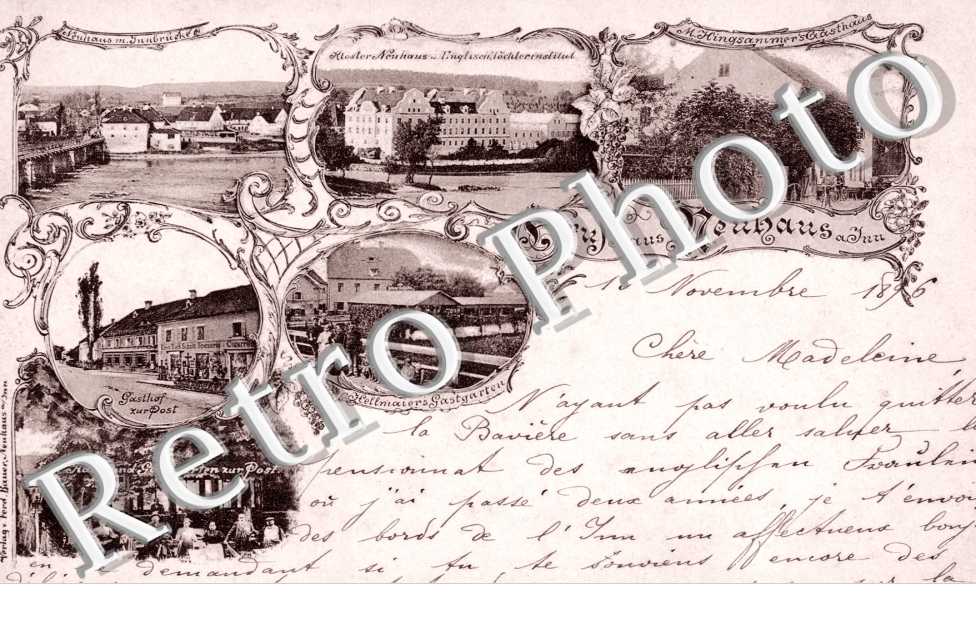 Neuhaus m. Innbrücke
Kloster Neuhaus u. Englisch. Töchterinstitut
M. Hingsammer's Gasthaus
aus Neuhaus a. Inn
Gasthof
zur Post
Hellmaiers Gastgarten
zur Post.
Verlag v. Ferd. Bauer, Neuhaus a. Inn
Novembre 1896
Chère Madeleine
N'ayant pas voulu quitter
la Bavière sans aller saluer
pensionnat des englischen Fräulein
où j'ai passé deux années, je t'envo
des bords de l'Inn un affectueux bonj
en demandant si tu te souviens encore des
la
Retro Photo